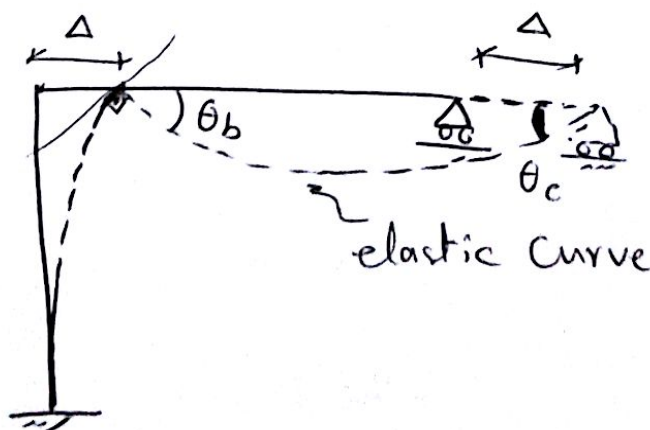 Δ
Δ
θb
θc
elastic curve